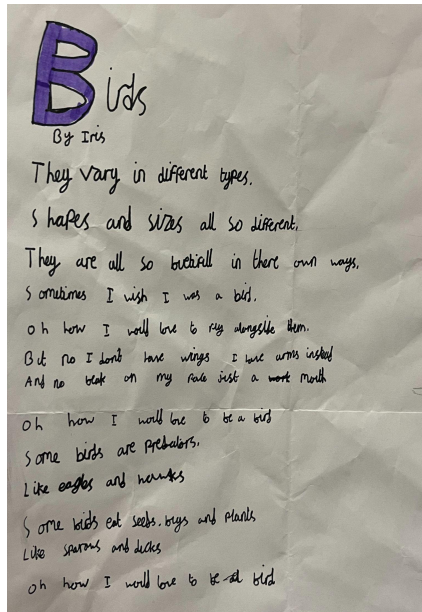 Birds
By Iris
They vary in different types.
Shapes and sizes all so different.
They are all so buetifull in there own ways,
Sometimes I wish I was a bird.
Oh how I would love to fly alongside them.
But no I don't have wings I have arms instead
And no beak on my face just a mouth
Oh how I would love to be a bird
Some birds are predators,
Like eagles and hawks
Some birds eat seeds, bugs and plants
Like sparows and ducks
Oh how I would love to be a bird